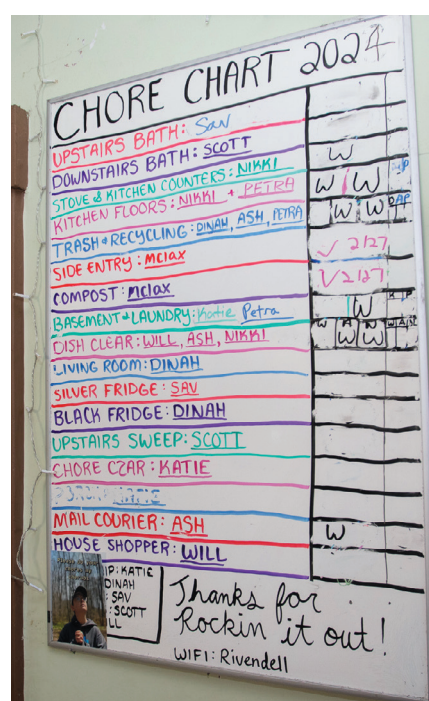 CHORE CHART 2024
UPSTAIRS BATH: Sav
DOWNSTAIRS BATH: SCOTT
W
STOVE & KITCHEN COUNTERS: NIKKI
KITCHEN FLOORS: NIKKI + PETRA
W W
TRASH + RECYCLING: DINAH, ASH, PETRA
W W D A P
SIDE ENTRY: mclax
✓ 2/27
COMPOST: mclax
✓ 2/27
BASEMENT + LAUNDRY: Katie Petra
W K P
DISH CLEAR: WILL, ASH, NIKKI
W A N W A N
W W
LIVING ROOM: DINAH
SILVER FRIDGE: SAV
BLACK FRIDGE: DINAH
UPSTAIRS SWEEP: SCOTT
CHORE CZAR: KATIE
MAIL COURIER: ASH
W
HOUSE SHOPPER: WILL
IP: KATIE
DINAH
: SAV
: SCOTT
LL
Thanks for
Rockin it out!
WIFI: Rivendell